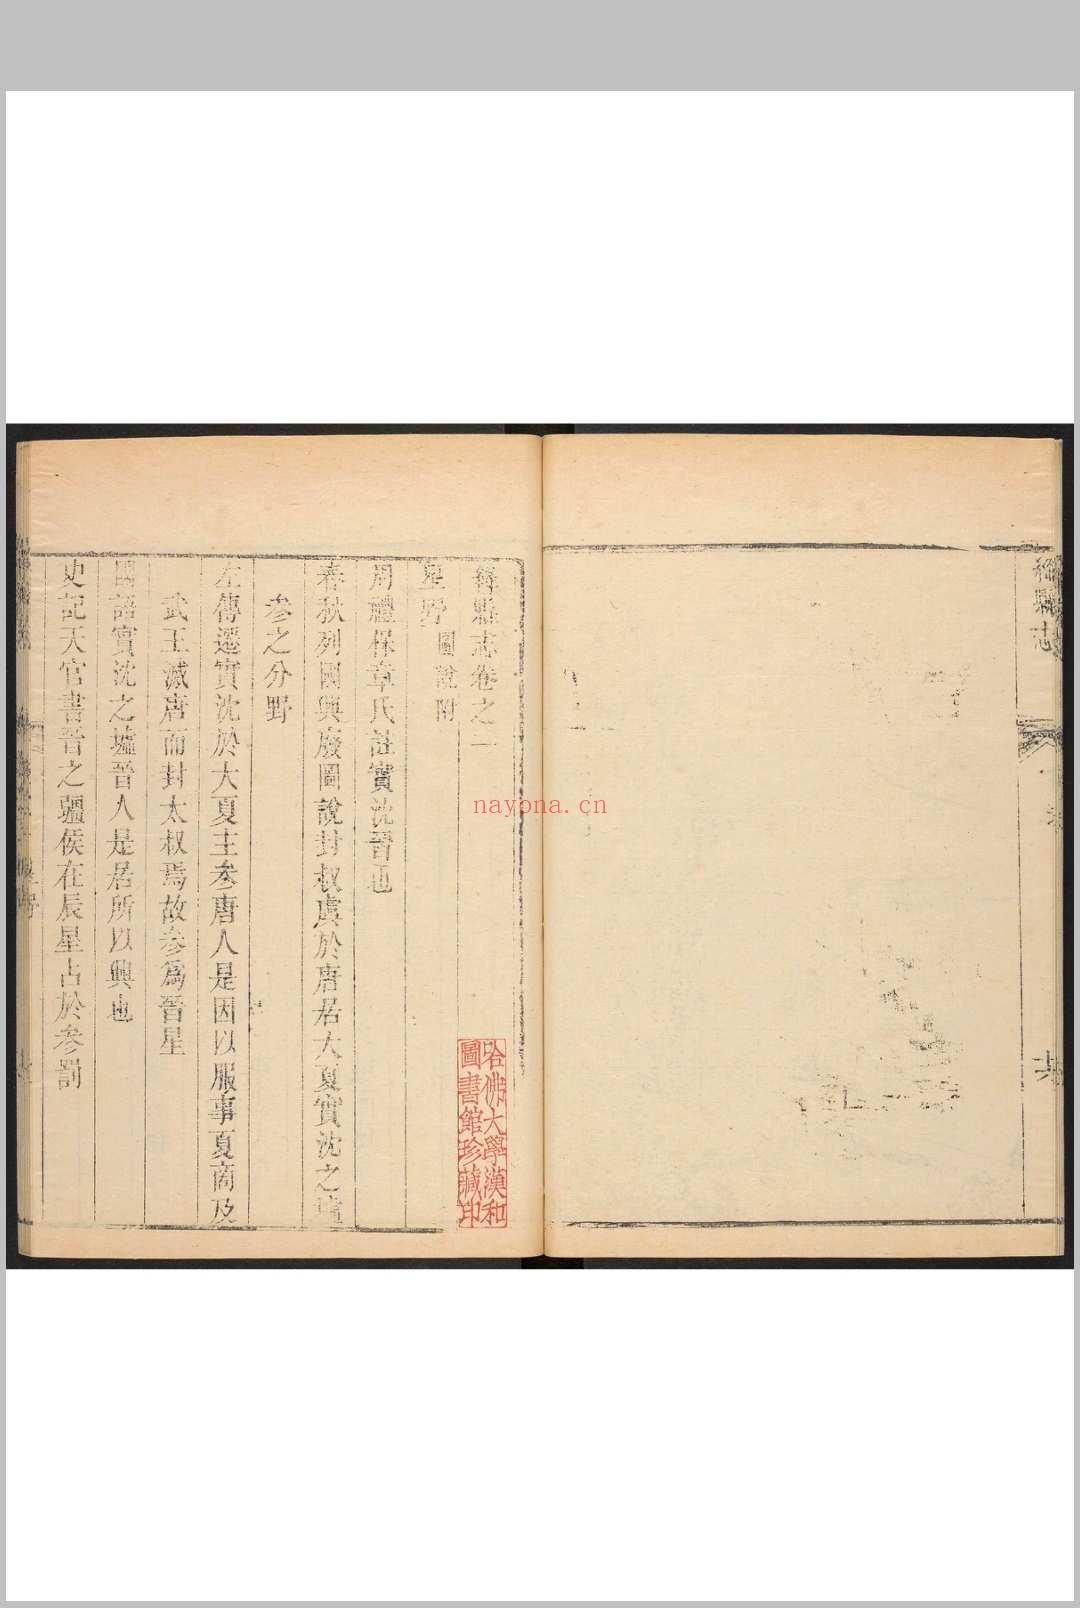 縣志
絳縣志卷之一
星野 圖說附
周禮保章氏註實沈晉也
春秋列國興廢圖說封叔虞於唐居大夏實沈之墟
參之分野
左傳遷實沈於大夏主參唐人是因以服事夏商及
武王滅唐而封太叔焉故參為晉星
國語實沈之墟晉人是居所以興也
史記天官書晉之疆候在辰星占於參罰
哈佛大學漢和
圖書館珍藏印
nayona.cn